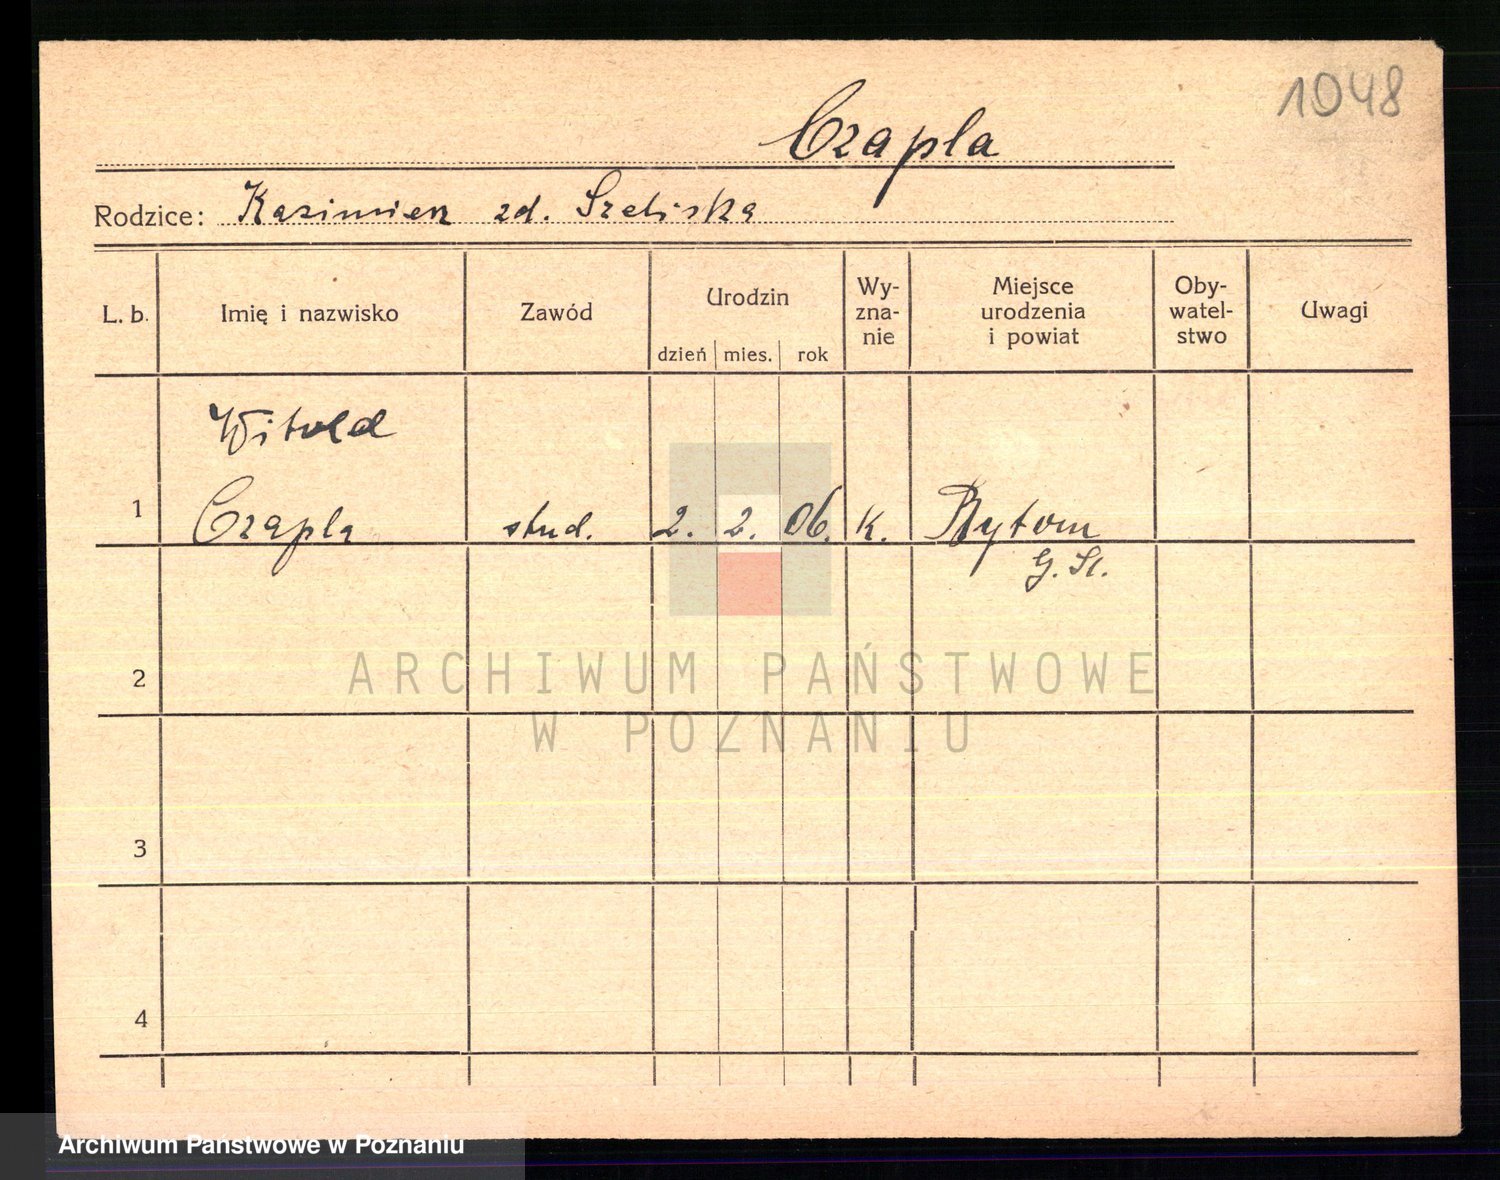 1048
Czapla
Rodzice: Kazimierz zd. Szeliska
L. b.
Imię i nazwisko
Zawód
Urodzin
dzień
mies.
rok
Wy-
zna-
nie
Miejsce
urodzenia
i powiat
Oby-
watel-
stwo
Uwagi
Witold
1 Czapla stud. 2. 2. 06. K. Bytom
G. Sl.
2
3
4
ARCHIWUM PAŃSTWOWE
W POZNANIU
Archiwum Państwowe w Poznaniu